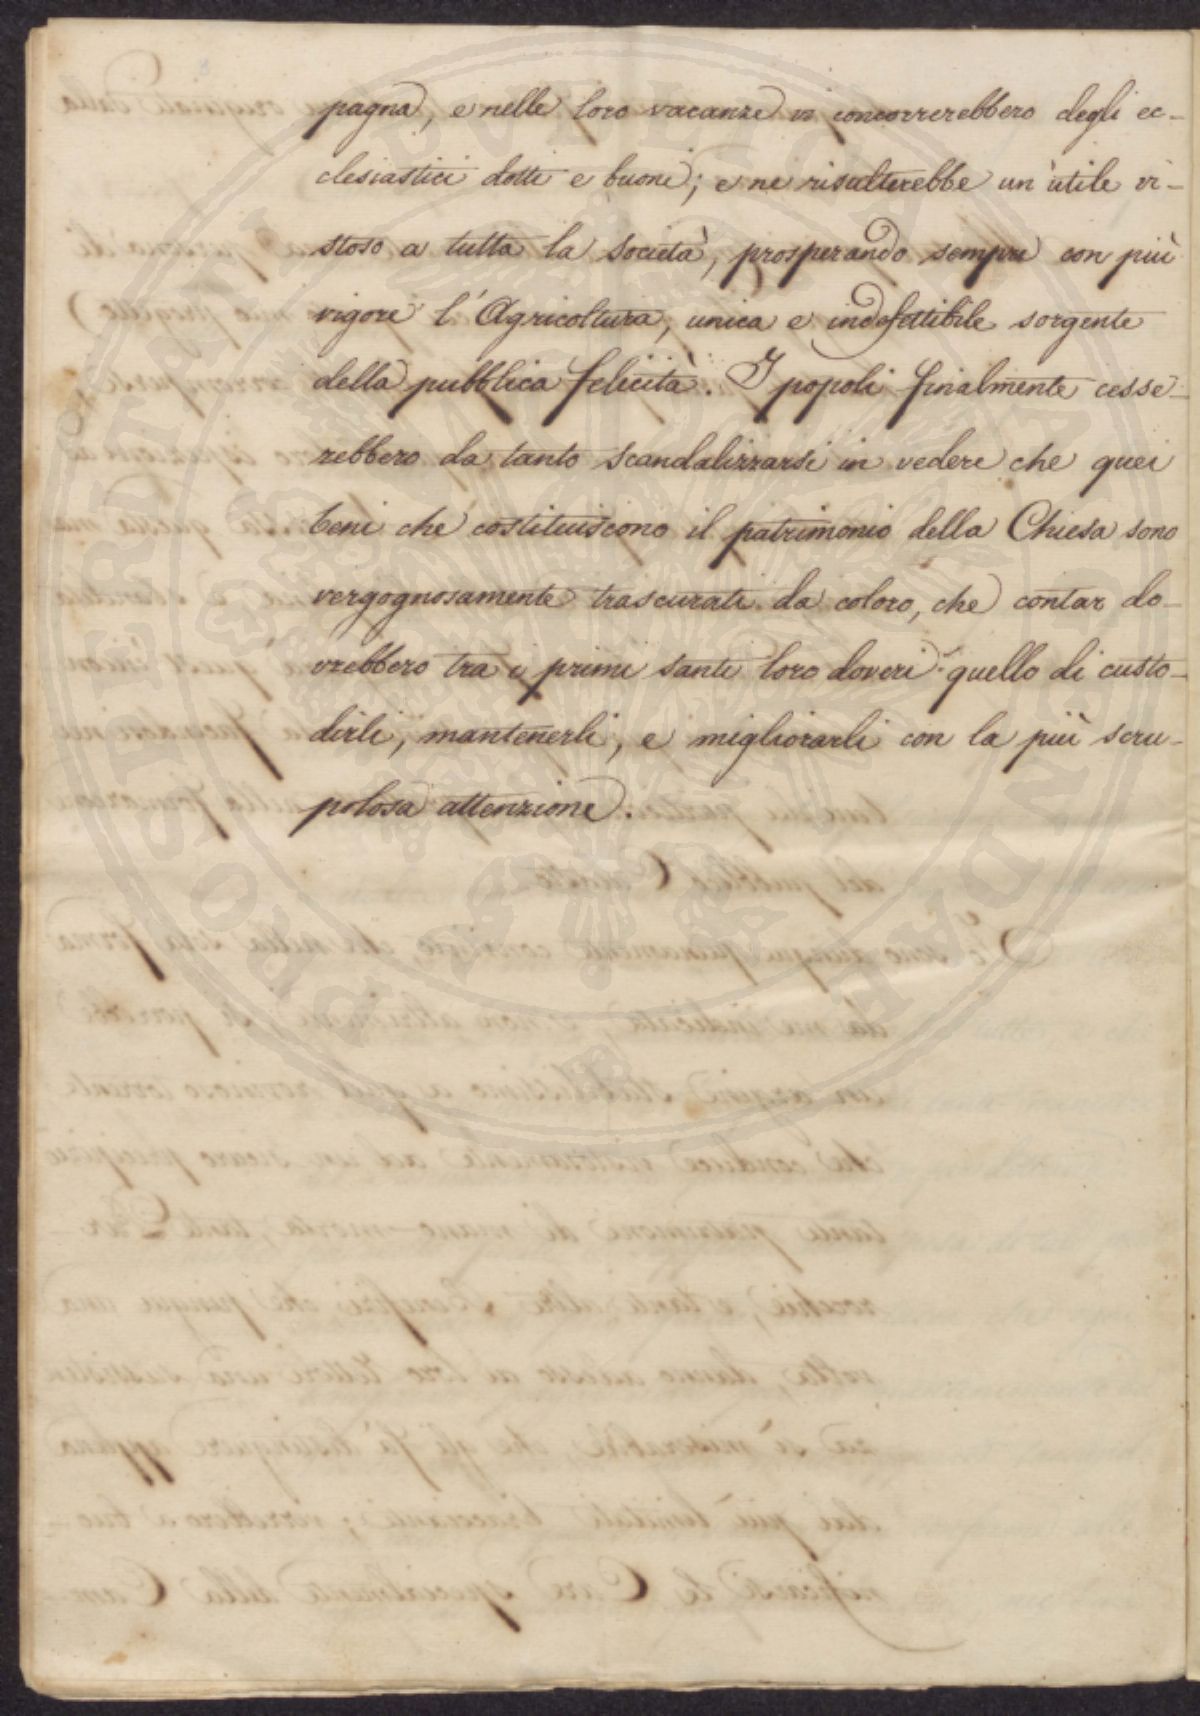 pagna, e nelle loro vacanze vi concorrerebbero degli ec-
clesiastici dotti e buoni; e ne risulterebbe un' utile vi-
stoso a tutta la società, prosperando sempre con più
vigore l' Agricoltura, unica e indefettibile sorgente
della pubblica felicità. I popoli finalmente cesse-
rebbero da tanto scandalizzarsi in vedere che quei
beni che costituiscono il patrimonio della Chiesa sono
vergognosamente trascurati da coloro, che contar do-
vrebbero tra i primi santi loro doveri quello di custo-
dirli, mantenerli, e migliorarli con la più scru-
polosa attenzione.